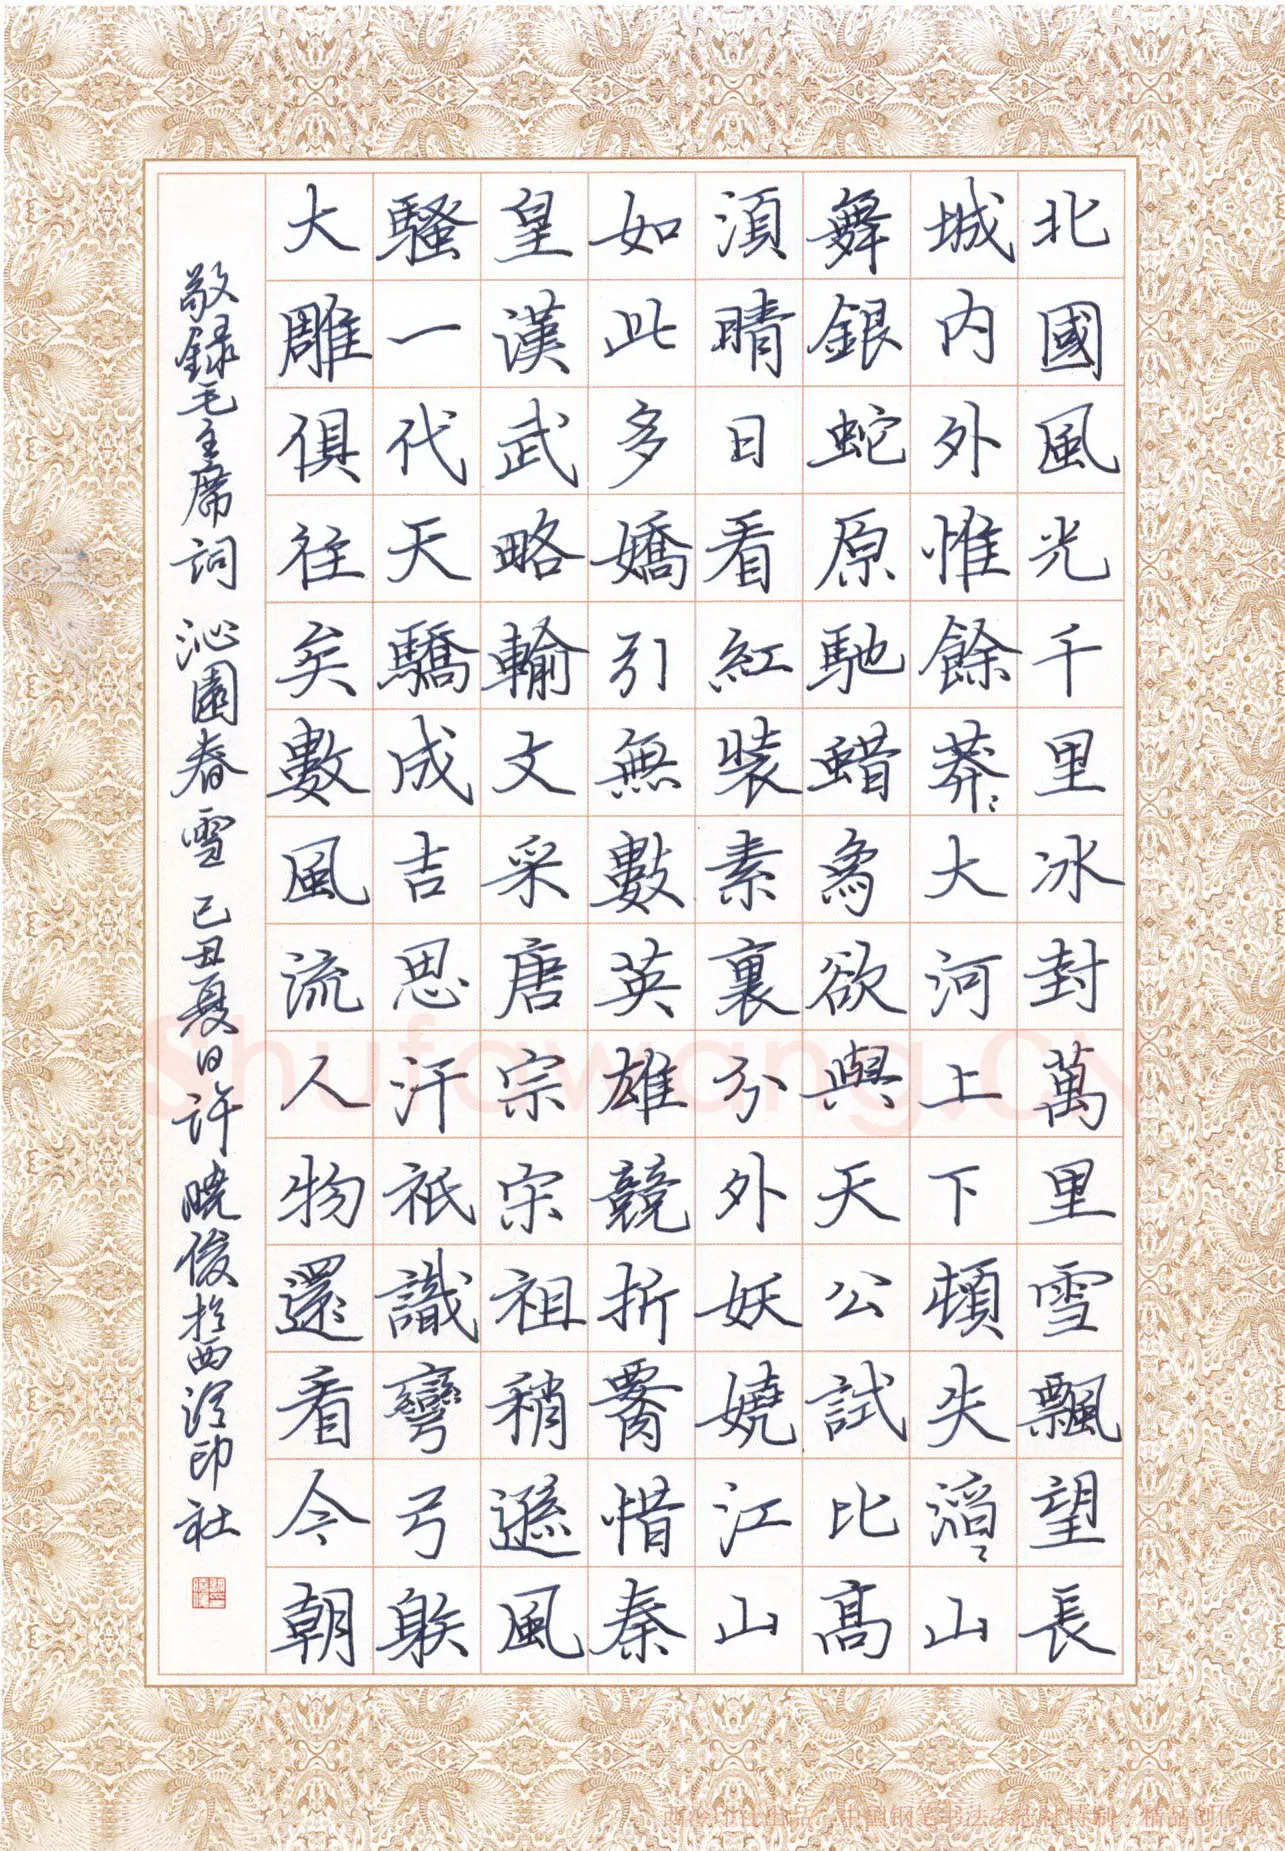 北國風光千里冰封萬里雪飄望長
城内外惟餘莽〻大河上下頓失滔〻山
舞銀蛇原馳蜡象欲與天公試比高
須晴日看紅裝素裏分外妖嬈江山
如此多嬌引無數英雄競折腰惜秦
皇漢武略輸文采唐宗宋祖稍遜風
騷一代天驕成吉思汗祇識彎弓䠶
大雕俱往矣數風流人物還〻看今朝
敬録毛主席詞 沁園春 雪 己丑夏日許曉俊於西泠印社
Shufawang.CN
西泠印社出品·中国钢笔书法杂志社特制·精品创作纸